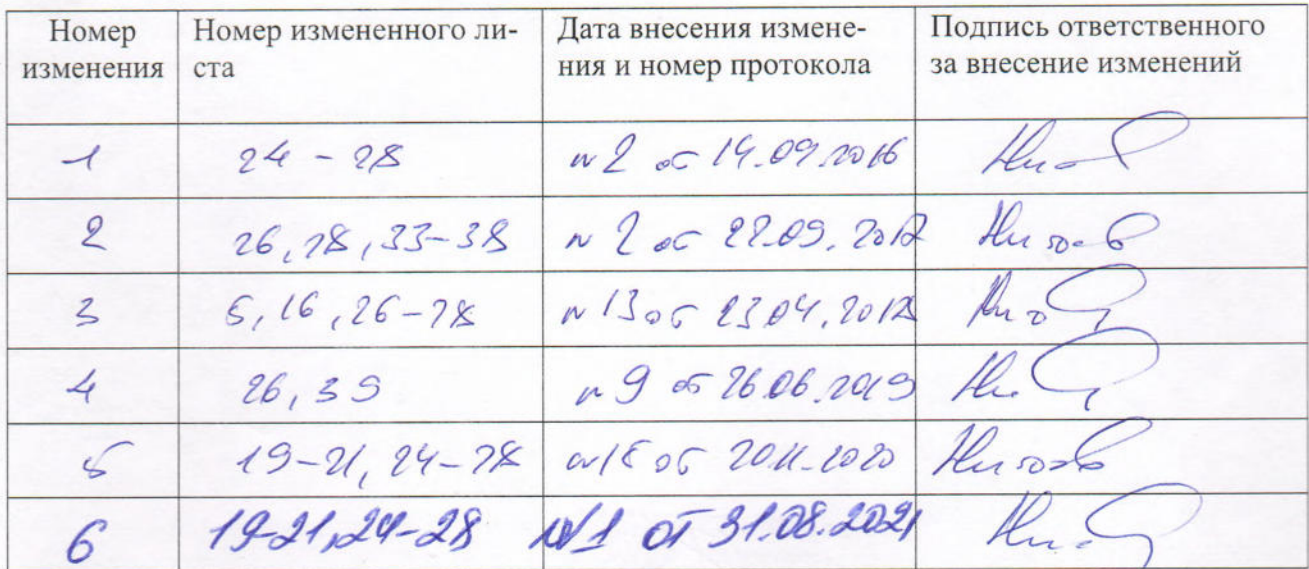 Номер изменения Номер измененного ли-ста Дата внесения измене-ния и номер протокола Подпись ответственного за внесение изменений
1 24 - 28 №2 от 14.09.2016
2 26, 28, 33-38 №2 от 22.09.2017
3 5, 16, 26-28 №13 от 23.04.2018
4 26, 39 №9 от 26.06.2019
5 19-21, 24-28 от 20.11.2020
6 19-21, 24-28 №1 от 31.08.2021